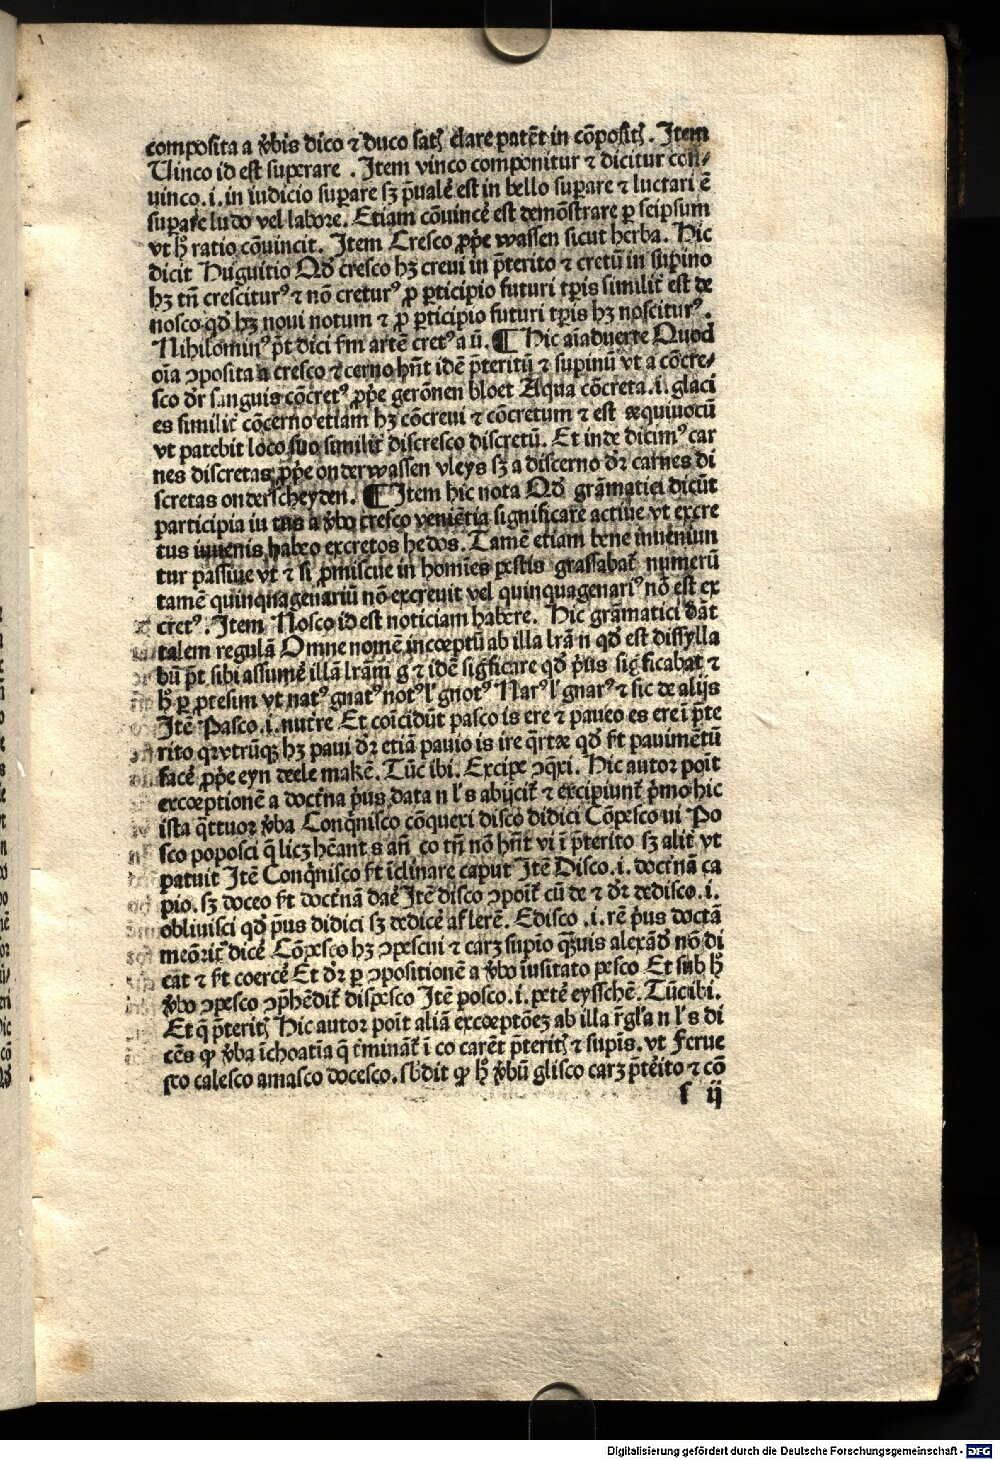 composita a v̾bis dico ⁊ duco satꝭ clare patēt in cōpositꝭ. Item
Vinco id est superare . Item vinco componitur ⁊ dicitur con⸗
uinco .i. in iudicio suꝑare sꝫ p̄ualē est in bello suꝑare ⁊ luctari ē
suꝑare ludo vel labore. Etiam cōuincē est demōstrare ꝑ seipsum
vt hꝰ ratio cōuincit. Item Cresco ꝓpͤ wassen sicut herba. Hic
dicit Huguitio Qd̾ cresco hꝫ creui in p̄terito ⁊ cretū in supino
hꝫ tn̄ cresciturꝰ ⁊ nō creturꝰ ꝓ ꝑticipio futuri tꝑis similit̾ est de
nosco qd̾ hꝫ noui notum ⁊ ꝓ ꝑticipio futuri tꝑis hꝫ nosciturꝰ.
Nihilominꝰ p̄t dici fm artē cretꝰ a ū. ¶ Hic aīaduerte Quod
oīa ꝯposita a cresco ⁊ cerno hn̄t idē p̄teritū ⁊ supinū vt a cōcre⸗
sco d̾r sanguis cōcretꝰ ꝓpͤ gerōnen bloet Aqua cōcreta .i. glaci
es similit̾ cōcerno etiam hꝫ cōcreui ⁊ cōcretum ⁊ est æquiuocū
vt patebit loco suo similit̾ discresco discretū. Et inde dicimꝰ car
nes discretas ꝓpͤ onderwassen vleys sꝫ a discerno d̾r carnes di
scretas onderscheyden. ¶ Item hic nota Qd̾ grāmatici dicūt
participia in tus a v̾bo cresco veniētia significare actiue vt excre
tus iuuenis habeo excretos hedos. Tamē etiam bene inueniun
tur passiue vt ⁊ si ꝓmiscue in homies pestis grassabat̾ numerū
tamē quinquagenariū nō excreuit vel quinquagenariꝰ nō est ex
cretꝰ. Item Nosco id est noticiam habere. Hic grāmatici dāt
talem regulā Omne nomē incœptū ab illa lr̄a n qd̾ est dissylla
bū p̄t sibi assumē illā lr̄am g ⁊ idē sig̾ficare qd̾ p̾us sig̾ficabat ⁊
hꝰ ꝑ ꝓtesim vt natꝰ gnatꝰ notꝰ l̾ gnotꝰ Narꝰ l̾ gnarꝰ ⁊ sic de alijs
Itē Pasco .i. nutre Et coīcidūt pasco is ere ⁊ paueo es ere ī p̄te
rito qr vtrūqꝫ hꝫ paui d̾r etiā pauio is ire q̄rtæ qd̾ f̾t pauimētū
facē ꝓpͤ eyn deele makē. Tūc ibi. Excipe ꝯq̄xi. Hic autor poit
excœptionē a doct̾na p̾us data n l̾ s abijcit̾ ⁊ excipiunt̾ p̾mo hic
ista q̄ttuor v̾ba Conq̾nisco cōquexi disco didici Cōpesco ui Po
sco poposci q̄ licꝫ hēant s an̄ co tn̄ nō hn̄t vi ī p̄terito sꝫ alit̾ vt
patuit Itē Conq̾nisco f̾t īclinare caput Itē Disco .i. doct̾nā ca
pio. sꝫ doceo f̾t doct̾nā daē Itē disco ꝯpoit̾ cū de ⁊ d̾r dedisco .i.
obliuisci qd̾ p̾us didici sꝫ dedicē asserē. Edisco .i. rē p̾us doctā
meōrit̾ dicē Cōpesco hꝫ ꝯpescui ⁊ carꝫ supio q̄uis alexād̾ nō di
cāt ⁊ f̾t coercē Et d̾r ꝑ ꝯpositionē a v̾bo iusitato pesco Et sub hꝰ
v̾bo ꝯpesco ꝯp̾hēdit̾ dispesco Itē posco .i. petē eysschē. Tūc ibi.
Et q̄ p̄teritꝭ Hic autor poit aliā excœptōeꝫ ab illa rgl̾a n l̾ s di
cēs ꝙ v̾ba īchoatia q̄ t̾mināt̾ ī co carēt p̄teritꝭ ⁊ supīs. vt Ferue
sco calesco amasco docesco. sb̾dit ꝙ hꝰ v̾bū glisco carꝫ p̄teito ⁊ cō
f ij
Digitalisierung gefördert durch die Deutsche Forschungsgemeinschaft - DFG